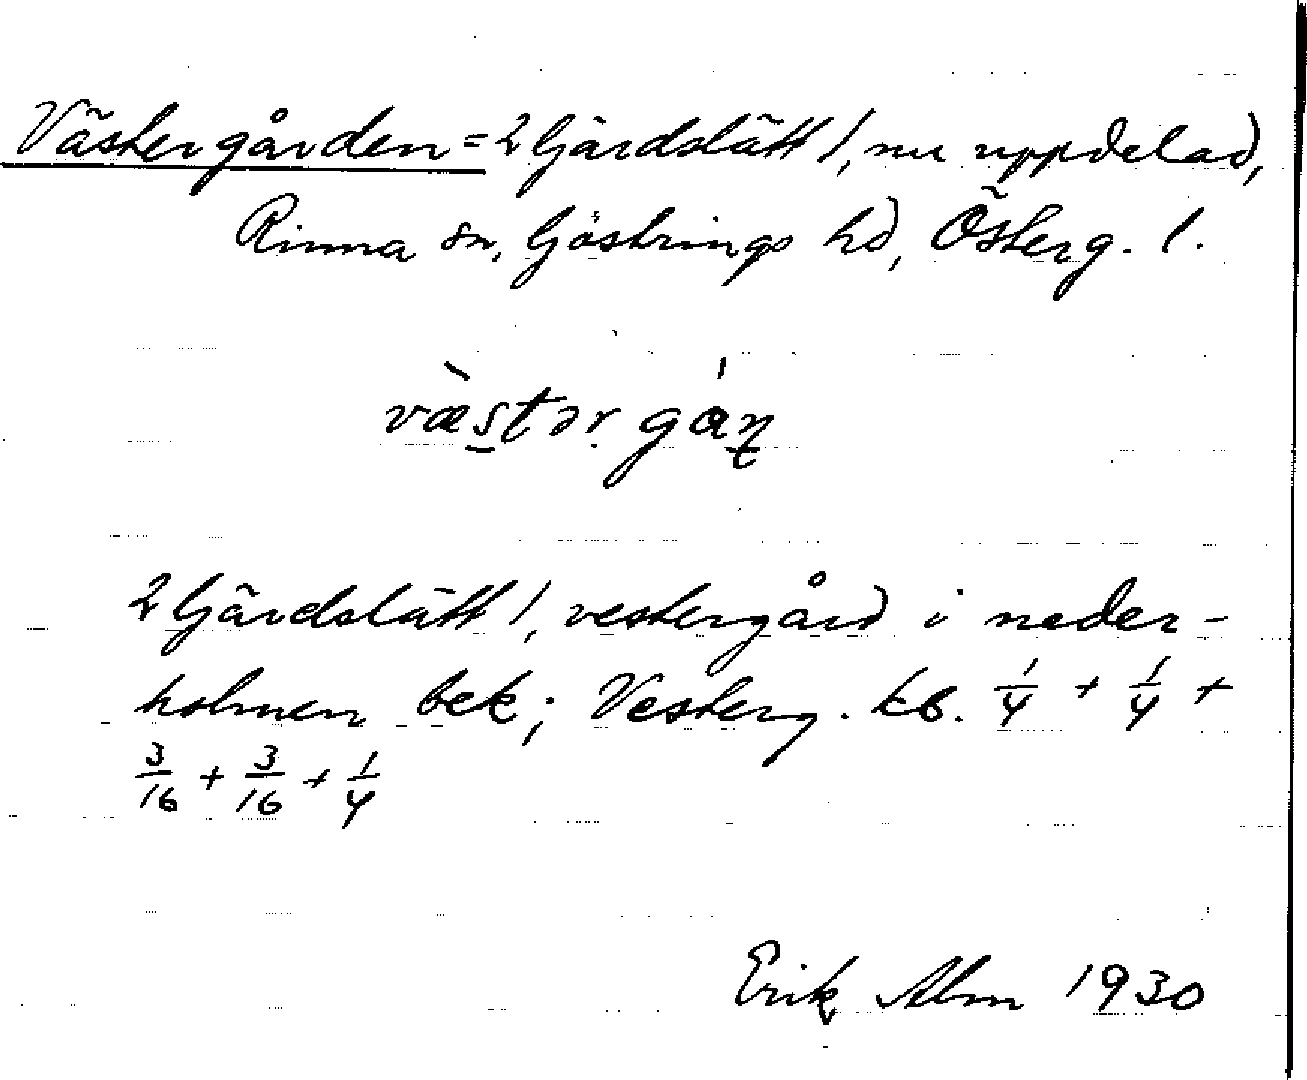 Västergården = 2 Gärdslätt 1, nu uppdelad,
Rinna sn, Göstrings hd, Österg. l.
væ̀stər gáṇ
2 Gärdslätt 1, vestergård i neder-
holmen bek; Vesterg. kb. 1/4 + 1/4 +
3/16 + 3/16 + 1/4
Erik Alm 1930